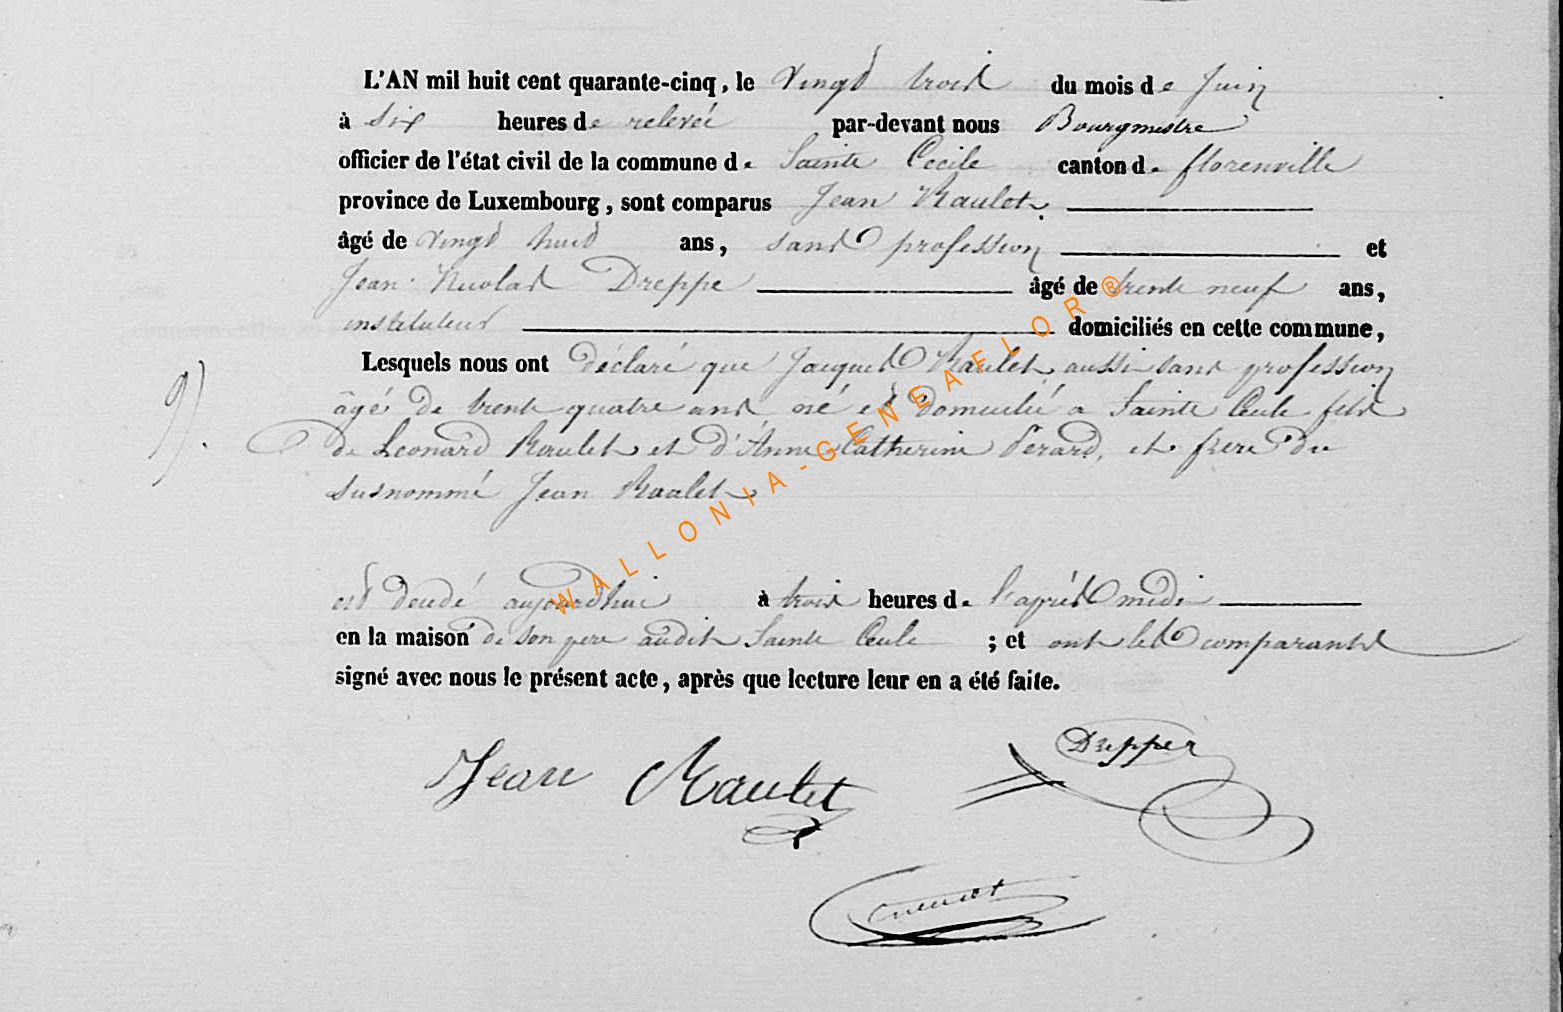 L'AN mil huit cent quarante-cinq, le vingt trois du mois de Juin
à six heures de relevée par-devant nous Bourgmestre
officier de l'état civil de la commune de Sainte Cecile canton de florenville
province de Luxembourg, sont comparus Jean Raulet
âgé de vingt huit ans, sans profession et
Jean Nicolas Dreppe âgé de trente neuf ans,
instituteur domiciliés en cette commune,
Lesquels nous ont déclaré que Jacques Raulet aussi sans profession
9)
âgé de trente quatre ans né et domicilié a Sainte Cecile fils
de Leonard Raulet et d'Anne Catherine Perard, et frere du
susnommé Jean Raulet
est décédé aujourdhui à trois heures de l'après midi
en la maison de son pere audit Sainte Cecile ; et ont les comparants
signé avec nous le présent acte, après que lecture leur en a été faite.
Jean Raulet
WALLONIA-GENEAFLOR®